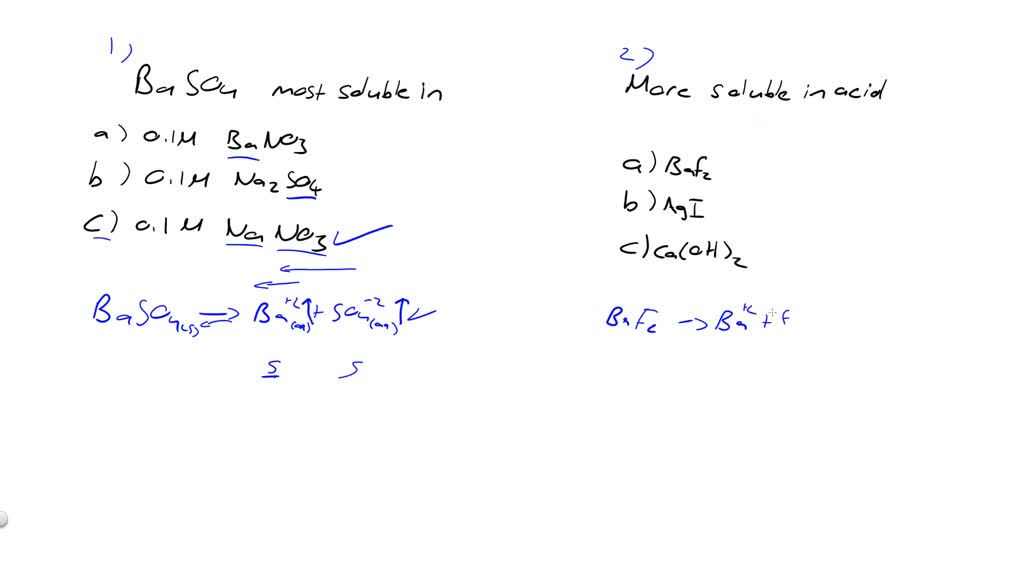 1)
BaSO4 most soluble in
a) 0.1M BaNO3
b) 0.1M Na2SO4
c) 0.1M NaNO3 ✓
BaSO4(s) ⇌ Ba+2(aq) ↑ + SO4-2(aq) ↑ ✓
s s
2)
More soluble in acid
a) BaF2
b) AgI
c) Ca(OH)2
BaF2 → Ba+2 + F